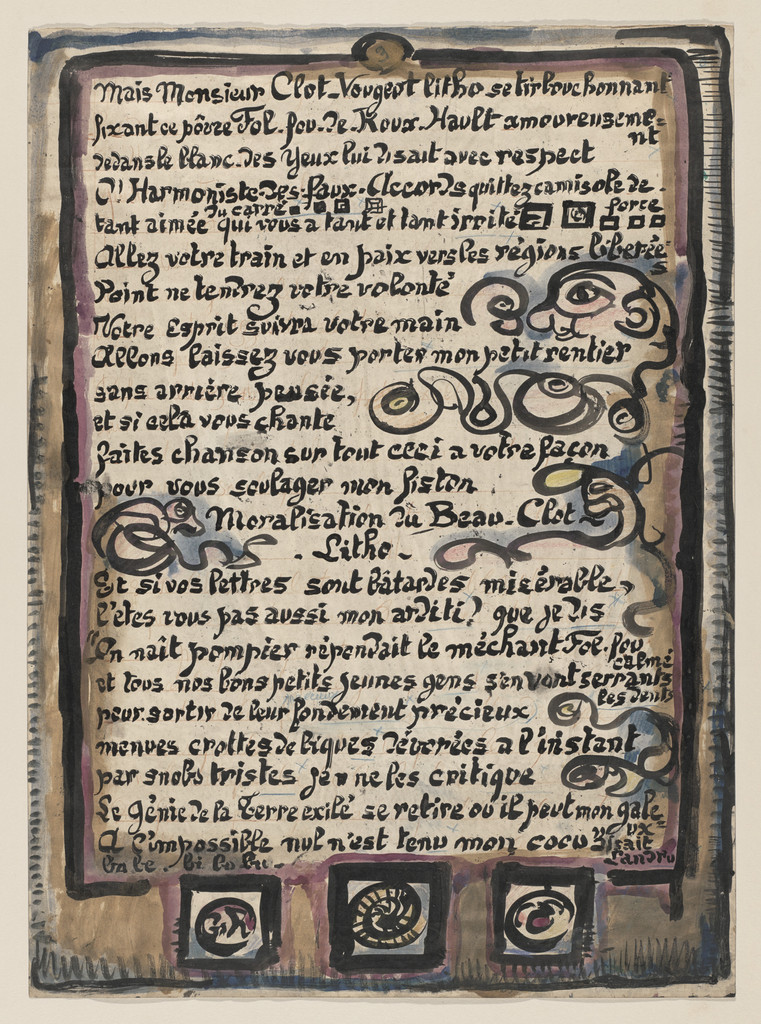 9
Mais Monsieur Clot-Vougeot litho se tirbouchonnant
fixant ce pôvre Fol-fou-de-Roux-Hault amoureuseme=
nt
dedans le blanc-des yeux lui disait avec respect
O! Harmoniste-des-faux-Accords quittez camisole de-
force
du carré
tant aimée qui vous a tant et tant irrité
Allez votre train et en paix vers les régions liberée
s
Point ne tendrez votre volonté
Notre Esprit suivra votre main
Allons laissez vous porter mon petit rentier
sans arrière pensée,
et si celà vous chante
faites chanson sur tout ceci a votre façon
pour vous soulager mon fiston
Moralisation du Beau-Clot-
-Litho-
Et si vos lettres sont bâtardes misérable,
l'êtes vous pas aussi mon arditi? que je dis
"On naît pompier répendait le méchant Fol-fou
calmé
et tous nos bons petits jeunes gens s'en vont serrants
les dents
pour sortir de leur fondement précieux
menues crottes de biques déverées a l'instant
par snobs tristes je ne les critique
Le Génie de la Terre exilé se retire où il peut mon gale=
ux
A l'impossible nul n'est tenu mon cocu disait
Landru
ba be-bi bo bu-
GR